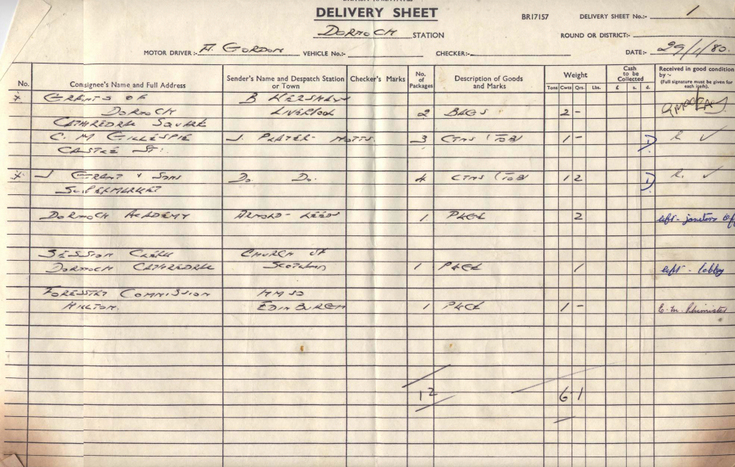 DELIVERY SHEET
BR17157 DELIVERY SHEET No.:- 1
DORNOCH STATION
ROUND OR DISTRICT:-
MOTOR DRIVER:- A. GORDON VEHICLE No.:- CHECKER:- DATE:- 29/1/80.
No. Consignee's Name and Full Address Sender's Name and Despatch Station or Town Checker's Marks No. of Packages Description of Goods and Marks Weight Cash to be Collected Received in good condition by :-
(Full signature must be given for each job).
Tons Cwts Qrs. Lbs. £ s. d.
x GRANTS OF B HERSHAW
DORNOCH LIVERPOOL 2 BAGS 2 -
CATHEDRAL SQUARE
C. M GILLESPIE J. PLAYER - NOTTS. 3 CTNS (TOB) 1 -
CASTLE ST.
x J GRANT & SONS DO. DO. 4 CTNS (TOB) 1 2
SUPERMARKET
DORNOCH ACADEMY ARNOLD - LEEDS 1 PKGE 2 left - janitors
SESSION CLERK CHURCH OF
DORNOCH CATHEDRAL SCOTLAND 1 PKGE 1 left - lobby
FORESTRY COMMISSION HMSO
HILTON. EDINBURGH 1 PKGE 1 -
12 6 1